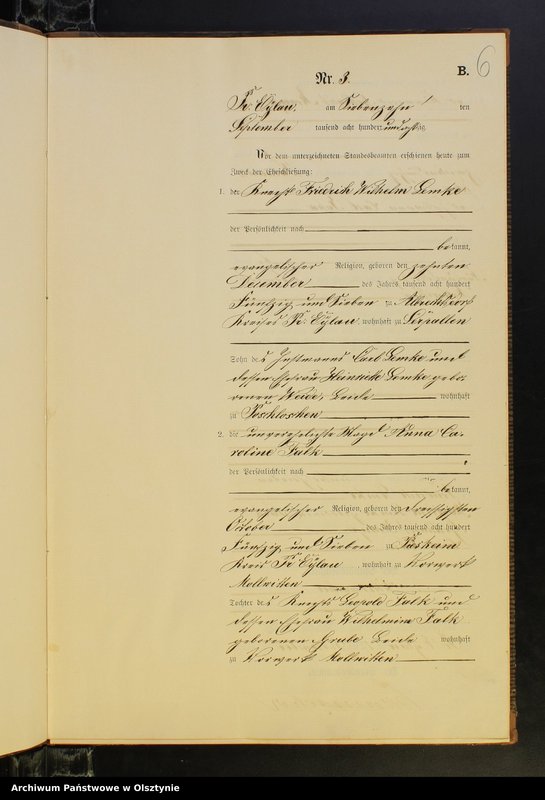 6
B.
Nr. 3.
Pr. Eylau, am Siebenzehn ten
September tausend acht hundert und achtzig.
Vor dem unterzeichneten Standesbeamten erschienen heute zum
Zweck der Eheschließung:
1. der Knecht Friedrich Wilhelm Lemke
der Persönlichkeit nach
bekannt,
evangelischer Religion, geboren den zehnten
Dezember des Jahres tausend acht hundert
Fünfzig und Sieben zu Albrechtsdorf
Kreises Pr. Eylau, wohnhaft zu Serpallen
Sohn des Instmanns Carl Lemke und
dessen Ehefrau Heinriette Lemke gebo-
renen Weide, Beide wohnhaft
zu Poschloschen
2. die unverehelichte Magd Anna Ca-
roline Falk
der Persönlichkeit nach
bekannt,
evangelischer Religion, geboren den Dreissigsten
October des Jahres tausend acht hundert
Fünfzig und Sieben zu
Kreis Pr. Eylau, wohnhaft zu Vorwerk
Mollwitten
Tochter des Knechts Leopold Falk und
dessen Ehefrau Wilhelmine Falk
geborenen Grube Beide wohnhaft
zu Vorwerk Mollwitten
Archiwum Państwowe w Olsztynie